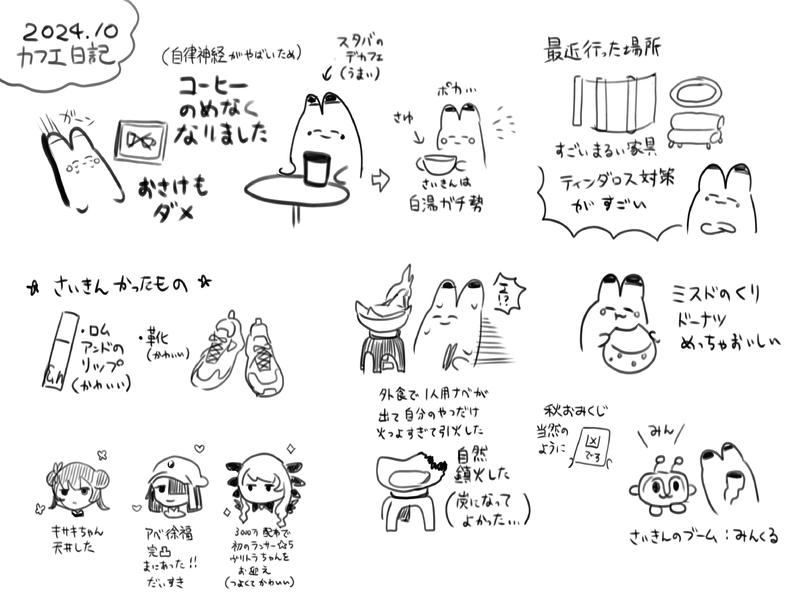 2024.10
カフェ日記
(自律神経がやばいため)
コーヒー
のめなく
なりました
おさけも
ダメ
ガーン
スタバの
デカフェ
(うまい)
ポカ…
さゆ
さいきんは
白湯ガチ勢
最近行った場所
すごいまるい家具
ティンダロス対策
がすごい
☆ さいきんかったもの ☆
・ロム
アンドの
リップ
(かわいい)
・靴
(かわいい)
エ!?
外食で1人用ナベが
出て自分のやつだけ
火つよすぎて引火した
自然
鎮火した
(炭になって
よかった…)
ミスドのくり
ドーナツ
めっちゃおいしい
秋おみくじ
当然の
ように
凶
でる
みん
さいきんのブーム:みんくる
キサキちゃん
天井した
アベ徐福
完凸
まにあった!!
だいすき
3000万DL配布で
初のランサー☆5
ヴリトラちゃんを
お迎え
(つよくてかわいい)